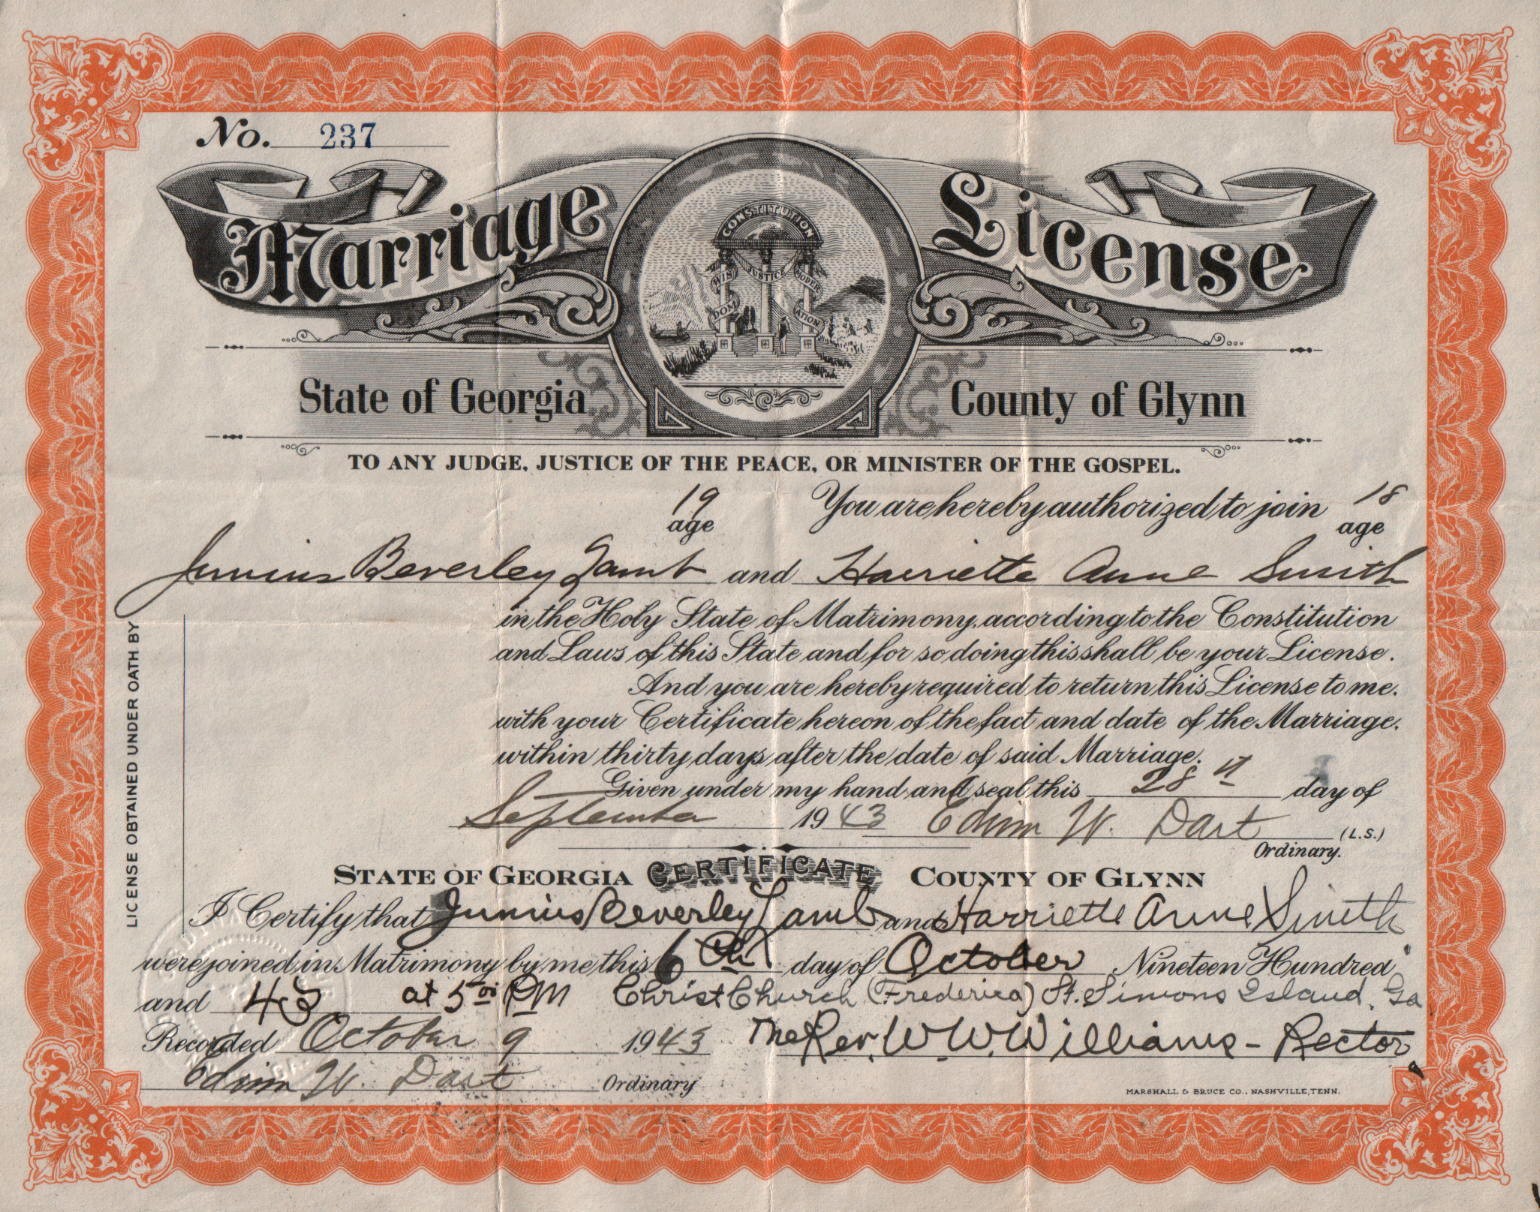 No. 237
Marriage License
CONSTITUTION
WIS DOM JUSTICE MODER ATION
State of Georgia County of Glynn
TO ANY JUDGE, JUSTICE OF THE PEACE, OR MINISTER OF THE GOSPEL.
19 You are hereby authorized to join 18
age age
Junius Beverley Lamb and Harriette Anne Smith
in the Holy State of Matrimony, according to the Constitution
and Laws of this State and for so doing this shall be your License.
And you are hereby required to return this License to me,
with your Certificate hereon of the fact and date of the Marriage,
within thirty days after the date of said Marriage.
Given under my hand and seal this 28th day of
September 1943 Edwin W. Dart (L.S.)
Ordinary.
LICENSE OBTAINED UNDER OATH BY
STATE OF GEORGIA CERTIFICATE COUNTY OF GLYNN
I Certify that Junius Beverley Lamb and Harriette Anne Smith
were joined in Matrimony by me this 6th day of October Nineteen Hundred
and 43 at 5:00 PM Christ Church (Frederica) St. Simons Island, Ga
Recorded October 9 1943 The Rev. W. W. Williams - Rector
Edwin W. Dart Ordinary
MARSHALL & BRUCE CO., NASHVILLE, TENN.